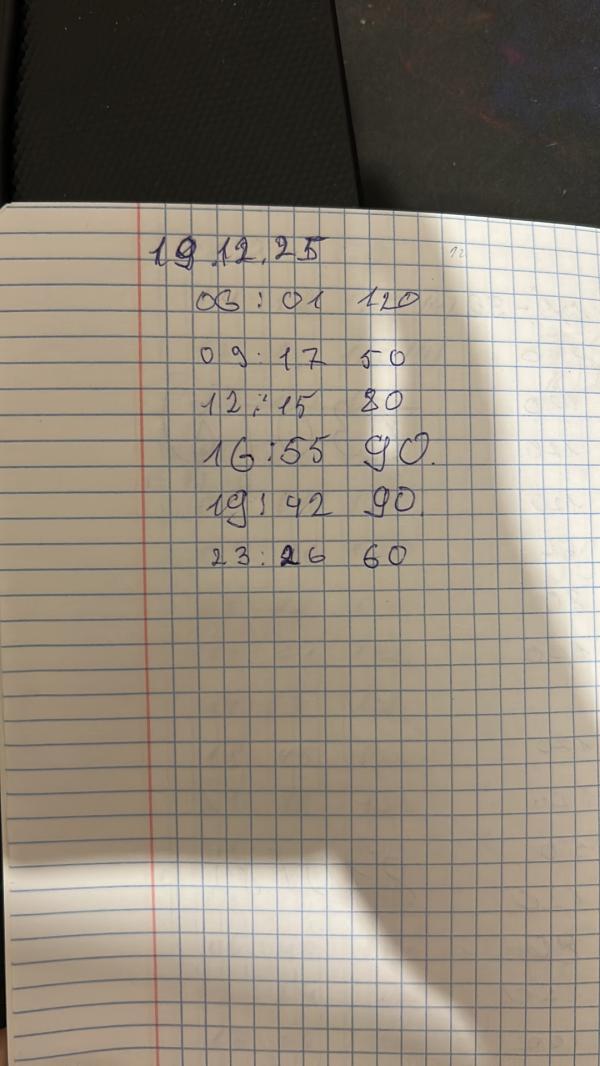 19.12.25
06:01 120
09:17 50
12:15 80
16:55 90.
19:42 90.
23:26 60